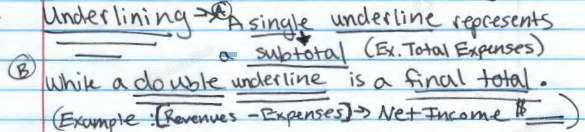 Underlining → Ⓐ A single underline represents
a subtotal (Ex. Total Expenses)
Ⓑ While a double underline is a final total.
(Example: [Revenues - Expenses] → Net Income $ __)